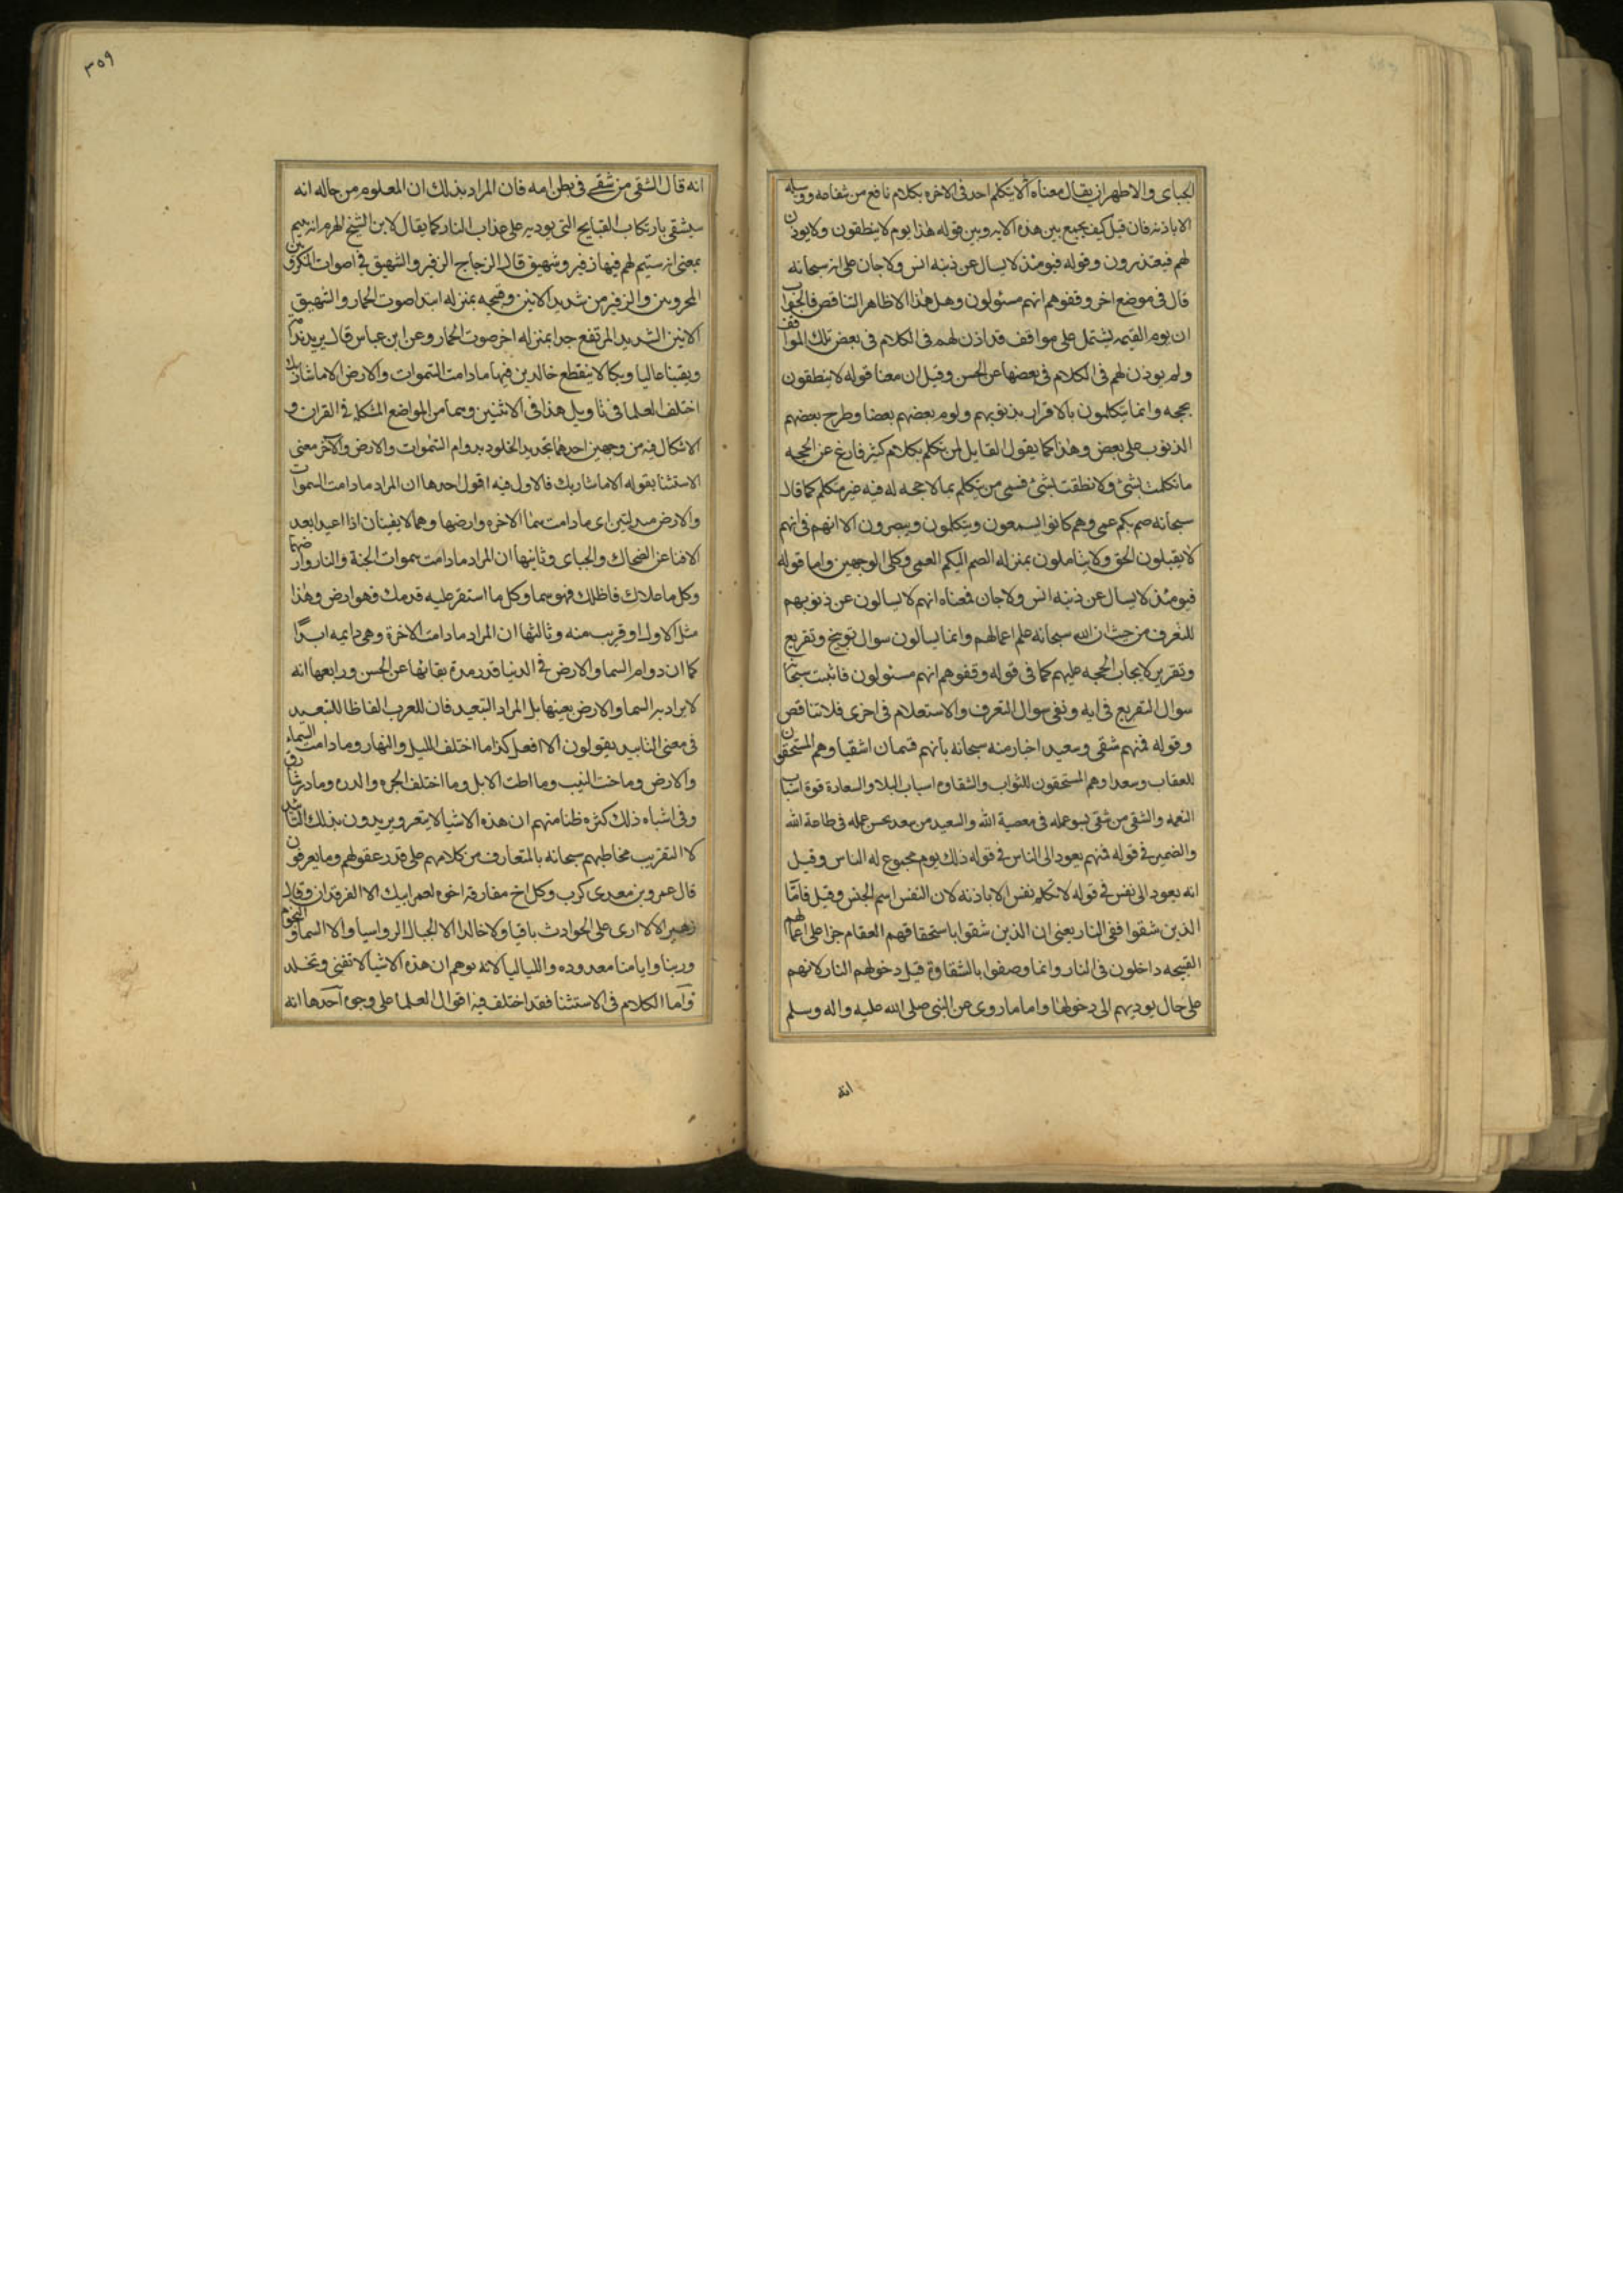 الجباى والاظهر ان يقال معناه الا يتكلم احد فى الاخره بكلام نافع من شفاعه ووسيله
الا باذنه فان قيل كيف يجمع بين هذه الايه وبين قوله هذا يوم لا ينطقون ولا يوذن
لهم فيعتذرون وقوله فيومئذ لا يسال عن ذنبه انس ولا جان على انه سبحانه
قال فى موضع اخر وقفوهم انهم مسئولون وهل هذا الا ظاهر التناقض فالجواب
ان يوم القيمه يشتمل على مواقف قد اذن لهم فى الكلام فى بعض تلك المواقف
ولم يوذن لهم فى الكلام فى بعضها عن الحسن وقيل ان معنا قوله لا ينطقون
بحجه وانما يتكلمون بالاقرار بذنوبهم ولوم بعضهم بعضا وطرح بعضهم
الذنوب على بعض وهذا كما يقول القايل لمن تكلم بكلام كثير فارغ عن الحجه
ما تكلمت بشئ ولا نطقت بشئ فسمى من يتكلم بما لا حجه له فيه غير متكلم كما قال
سبحانه صم بكم عمى وهم كانوا يسمعون ويتكلمون ويبصرون الا انهم فى انهم
لا يقبلون الحق ولا يتاملون بمنزله الصم البكم العمى وكلى الوجهين واما قوله
فيومئذ لا يسال عن ذنبه انس ولا جان فمعناه انهم لا يسالون عن ذنوبهم
للتعرف من حيث ان الله سبحانه علم اعمالهم وانما يسالون سوال توبيخ وتقريع
وتقرير لايجاب الحجه عليهم كما فى قوله وقفوهم انهم مسئولون فاثبت سبحانه
سوال التقريع فى ايه ونفى سوال التعرف والاستعلام فى اخرى فلا تناقض
وقوله فمنهم شقى وسعيد اخبار منه سبحانه بانهم قسمان اشقيا وهم المستحقون
للعقاب وسعدا وهم المستحقون للثواب والشقاوه اسباب البلا والسعادة قوة اسباب
النعمه والشقى من شقى بسو عمله فى معصية الله والسعيد من سعد بحسن عمله فى طاعة الله
والضمير فى قوله فمنهم يعود الى الناس فى قوله ذلك يوم مجموع له الناس وقيل
انه يعود الى نفس فى قوله لا تكلم نفس الا باذنه لان النفس اسم الجنس وقيل فامّا
الذين شقوا ففى النار يعنى ان الذين شقوا باستحقاقهم العقام جزا على اعمالهم
القبيحه داخلون فى النار وانما وصفوا بالشقاوة قبل دخولهم النار لانهم
على حال يوديهم الى دخولها واما ما روى عن النبى صلى الله عليه واله وسلم
انه
٣٥٩
انه قال الشقى من شقى فى بطن امه فان المراد بذلك ان المعلوم من حاله انه
سيشقى بارتكاب القبايح التى يوديه على عذاب النار كما يقال لابن الشيخ الهرم انه يتيم
بمعنى انه سيتيم لهم فيها زفير وشهيق قال الزجاج الزفير والشهيق فى اصوات المكروبين
المحزونين والزفير من شديد الانين وقبيحه بمنزله ابتدا صوت الحمار والشهيق
الانين الشديد المرتفع جدا بمنزله اخر صوت الحمار وعن ابن عباس قال يريد ندامه
ونفسا عاليا وبكا لا ينقطع خالدين فيها ما دامت السموات والارض الا ما شا ربك
اختلف العلما فى تاويل هذا فى الاثنين وهما من المواضع المشكله فى القران و
الاشكال فيه من وجهين احدهما تحديد الخلود بدوام السموات والارض والآخر معنى
الاستثنا بقوله الا ما شا ربك فالاول فيه اقول احدها ان المراد ما دامت السموات
والارض مبدلتين اى ما دامت سما الاخره وارضها وهما لا يفنيان اذا اعيدا بعد
الافنا عن الضحاك والجباى وثانيها ان المراد ما دامت سموات الجنة والنار وارضهما
وكل ما علاك فاظلك فهو سما وكل ما استقر عليه قدمك فهو ارض وهذا
مثل الاول او قريب منه وثالثها ان المراد ما دامت الاخرة وهى دايمه ابدًا
كما ان دوام السما والارض فى الدنيا قدر مدة بقائها عن الحسن ورابعها انه
لا يراد به السما والارض بعينها بل المراد التبعيد فان للعرب الفاظا للتبعيد
فى معنى التابيد يقولون الا افعل كذا ما اختلف الليل والنهار وما دامت السماء
والارض وما حنت النيب وما اطت الابل وما اختلف الجره والدره وما ذر شارق
وفى اشباه ذلك كثره ظنا منهم ان هذه الاشيا لا يتغر ويريدون بذلك التابيد
لا التقريب مخاطبهم سبحانه بالمتعارف من كلامهم على قدر عقولهم وما يعرفون
قال عمرو بن معدى كرب وكل اخ مفارقه اخوه لعمر ابيك الا الفرقدان وقال
زهير الا لا ارى على الحوادث باقيا ولا خالدا الا الجبال الرواسيا والا السما والنجوم
وربنا وايامنا معدوده واللياليا لانه توهم ان هذه الاشيا لا تفنى وتخلد
وَاما الكلام فى الاستثنا فقد اختلف فيه اقوال العلما على وجوه آحدها انه